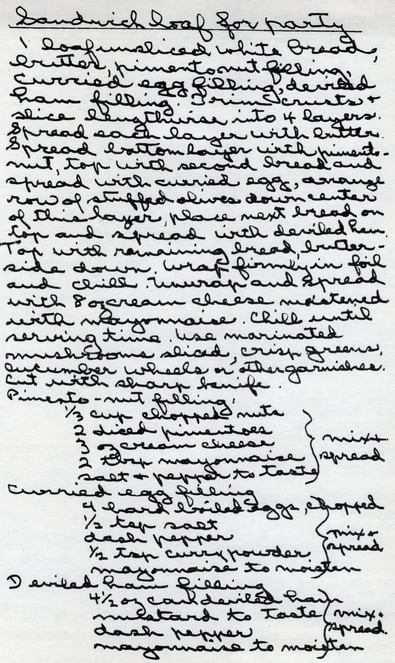 Sandwich loaf for party
1 loaf unsliced white bread,
butter, pimento nut filling,
curried egg filling, deviled
ham filling. Trim crusts +
slice lengthwise into 4 layers.
Spread each layer with butter.
Spread bottom layer with pimento-
nut, top with second bread and
spread with curried egg, arrange
row of stuffed olives down center
of this layer, place next bread on
top and spread with deviled ham.
Top with remaining bread, butter-
side down. Wrap firmly in foil
and chill. Unwrap and spread
with 8 oz cream cheese moistened
with mayonnaise. Chill until
serving time. Use marinated
mushrooms sliced, crisp greens,
cucumber wheels or other garnishes.
Cut with sharp knife.
Pimento-nut filling:
1/3 cup chopped nuts
2 diced pimentoes
3 oz cream cheese
2 tbsp mayonnaise
salt + pepper to taste
mix +
spread
Curried egg filling
4 hard boiled eggs, chopped
1/2 tsp salt
dash pepper
1/2 tsp curry powder
mayonaise to moisten
mix +
spread
Deviled ham filling
4 1/2 oz can deviled ham
mustard to taste
dash pepper
mayonnaise to moisten
mix +
spread.